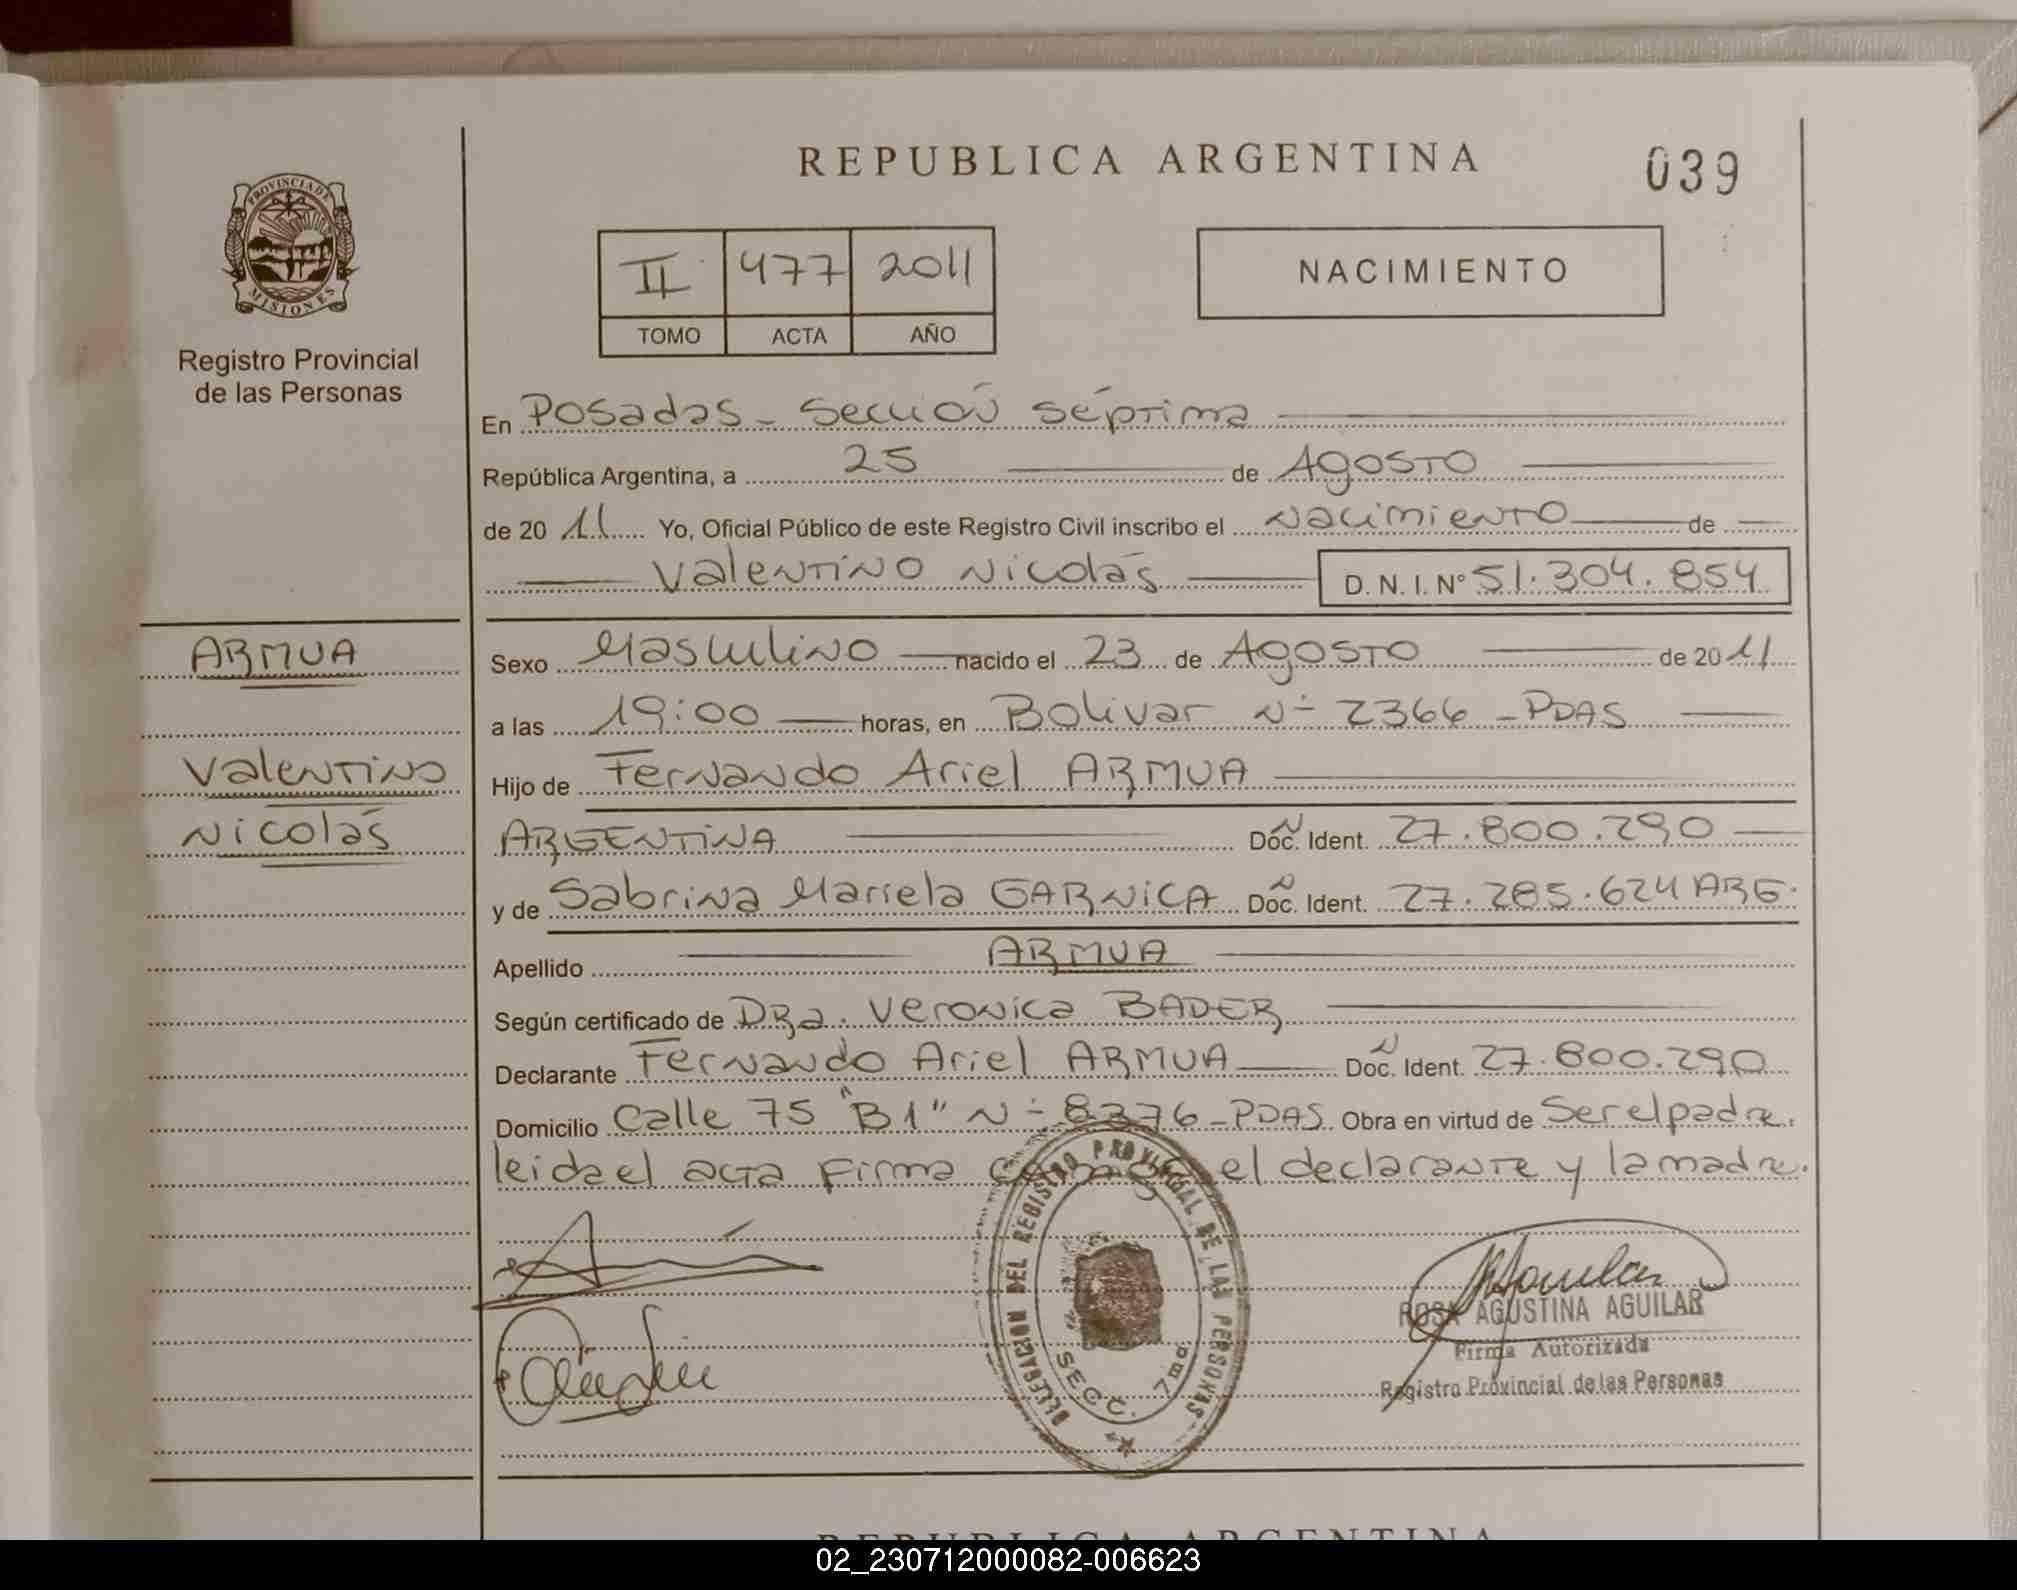 REPUBLICA ARGENTINA
039
PROVINCIA DE
MISIONES
Registro Provincial
de las Personas
II 477 2011
TOMO ACTA AÑO
NACIMIENTO
En Posadas - Sección Séptima
República Argentina, a 25 de Agosto
de 2011 Yo, Oficial Público de este Registro Civil inscribo el Nacimiento de
Valentino Nicolás D. N. I. N° 51.304.854
ARMUA
Valentino
Nicolás
Sexo Masculino nacido el 23 de Agosto de 2011
a las 19:00 horas, en Bolivar N- 2366 - PDAS
Hijo de Fernando Ariel ARMUA
ARGENTINA Doc. N Ident. 27.800.290
y de Sabrina Mariela GARNICA Doc. N Ident. 27.285.624 ARG.
Apellido ARMUA
Según certificado de DRa. Veronica BADER
Declarante Fernando Ariel ARMUA Doc. N Ident. 27.800.290
Domicilio Calle 75 "B1" N- 8376 - PDAS Obra en virtud de Ser el padre.
leida el acta firma el declarante y la madre.
DELEGACION DEL REGISTRO PROVINCIAL DE LAS PERSONAS
SECC. 7ma.
ROSA AGUSTINA AGUILAR
Firma Autorizada
Registro Provincial de las Personas
REPUBLICA ARGENTINA
02_230712000082-006623